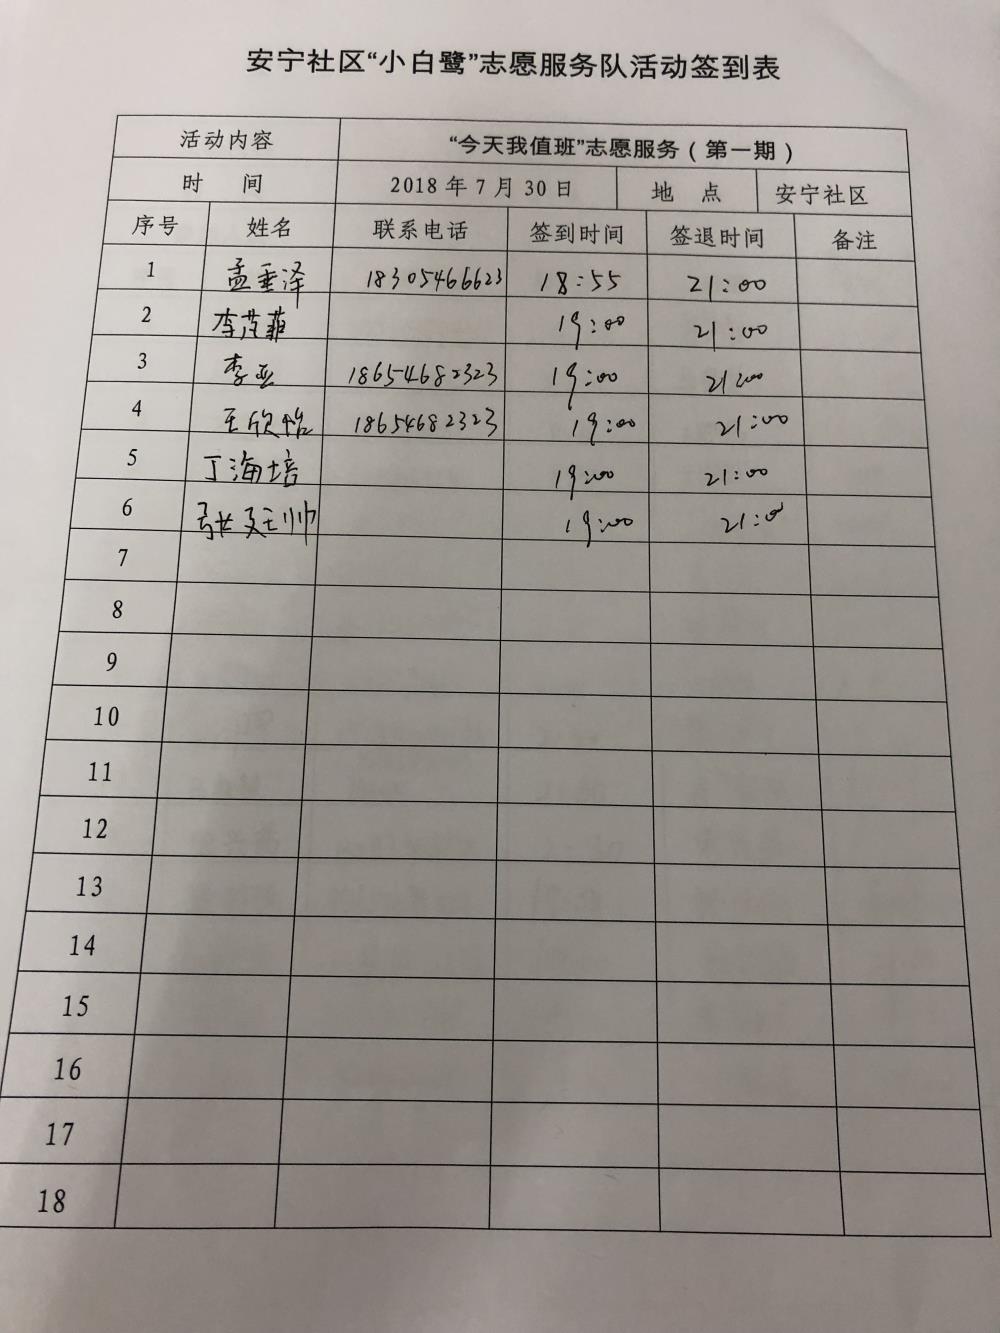 安宁社区“小白鹭”志愿服务队活动签到表
活动内容 “今天我值班”志愿服务（第一期）
时 间 2018 年 7 月 30 日 地 点 安宁社区
序号 姓名 联系电话 签到时间 签退时间 备注
1 孟垂泽 18305466623 18:55 21:00
2 李芃菲 19:00 21:00
3 李亚 18654682323 19:00 21:00
4 王欣怡 18654682323 19:00 21:00
5 丁海培 19:00 21:00
6 19:00 21:00
7
8
9
10
11
12
13
14
15
16
17
18